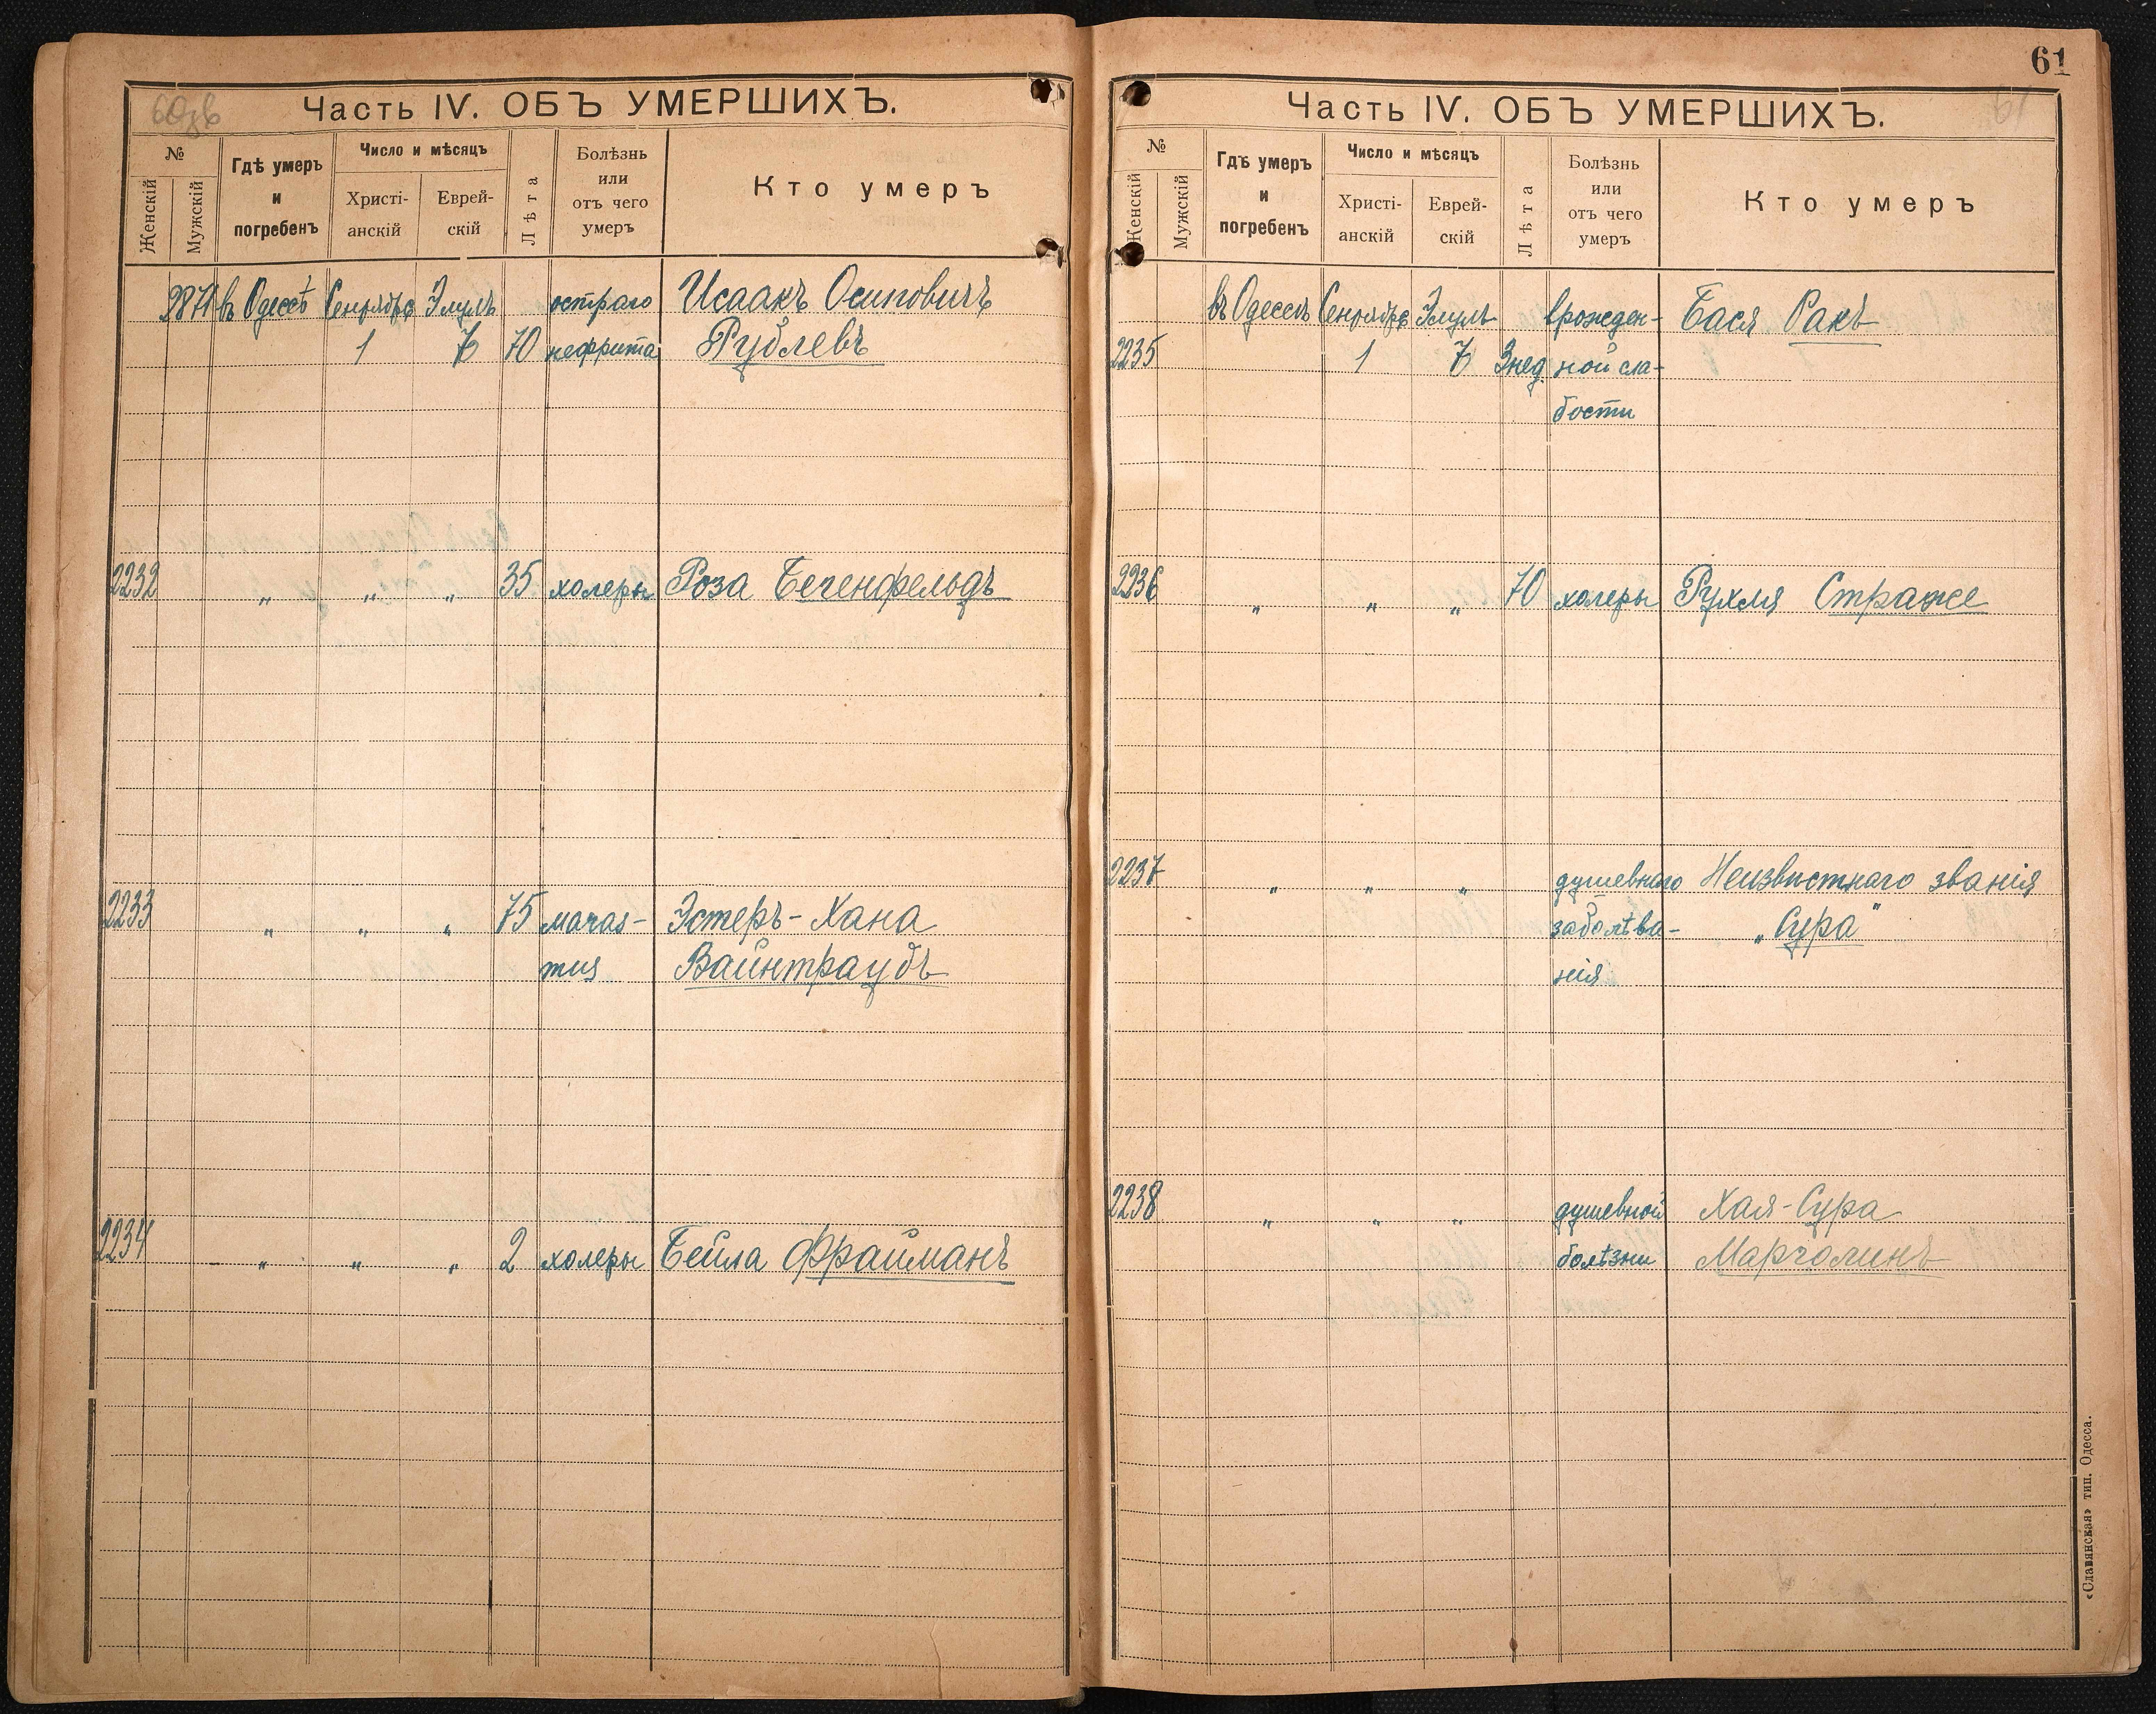 60зв
Часть IV. ОБЪ УМЕРШИХЪ.
№
Женскій
Мужскій
Гдѣ умеръ
и
погребенъ
Число и мѣсяцъ
Христі-
анскій
Еврей-
скій
Лѣта
Болѣзнь
или
отъ чего
умеръ
Кто умеръ
2871 въ Одессѣ Сентября Элулъ остраго Исаакъ Осиповичъ
1 7 70 нефрита Рублевъ
2232 " " " 35 холеры Роза Бегенфельдъ
2233 " " " 75 мараз- Эстеръ-Хана
Вайнтраубъ
2234 " " " 2 холеры Бейла Фрайманъ
61
61
Часть IV. ОБЪ УМЕРШИХЪ.
№
Женскій
Мужскій
Гдѣ умеръ
и
погребенъ
Число и мѣсяцъ
Христі-
анскій
Еврей-
скій
Лѣта
Болѣзнь
или
отъ чего
умеръ
Кто умеръ
въ Одессѣ Сентября Элулъ врожден- Бася Ракъ
2235 1 7 3 нед. ной сла-
бости
2236 " " " 70 холеры Рухля Страже
2237 " " " душевнаго Неизвѣстнаго званія
заболѣва- „Сура"
нія
2238 " " " душевной Хая-Сура
болѣзни Марголинъ
«Славянская» тип. Одесса.